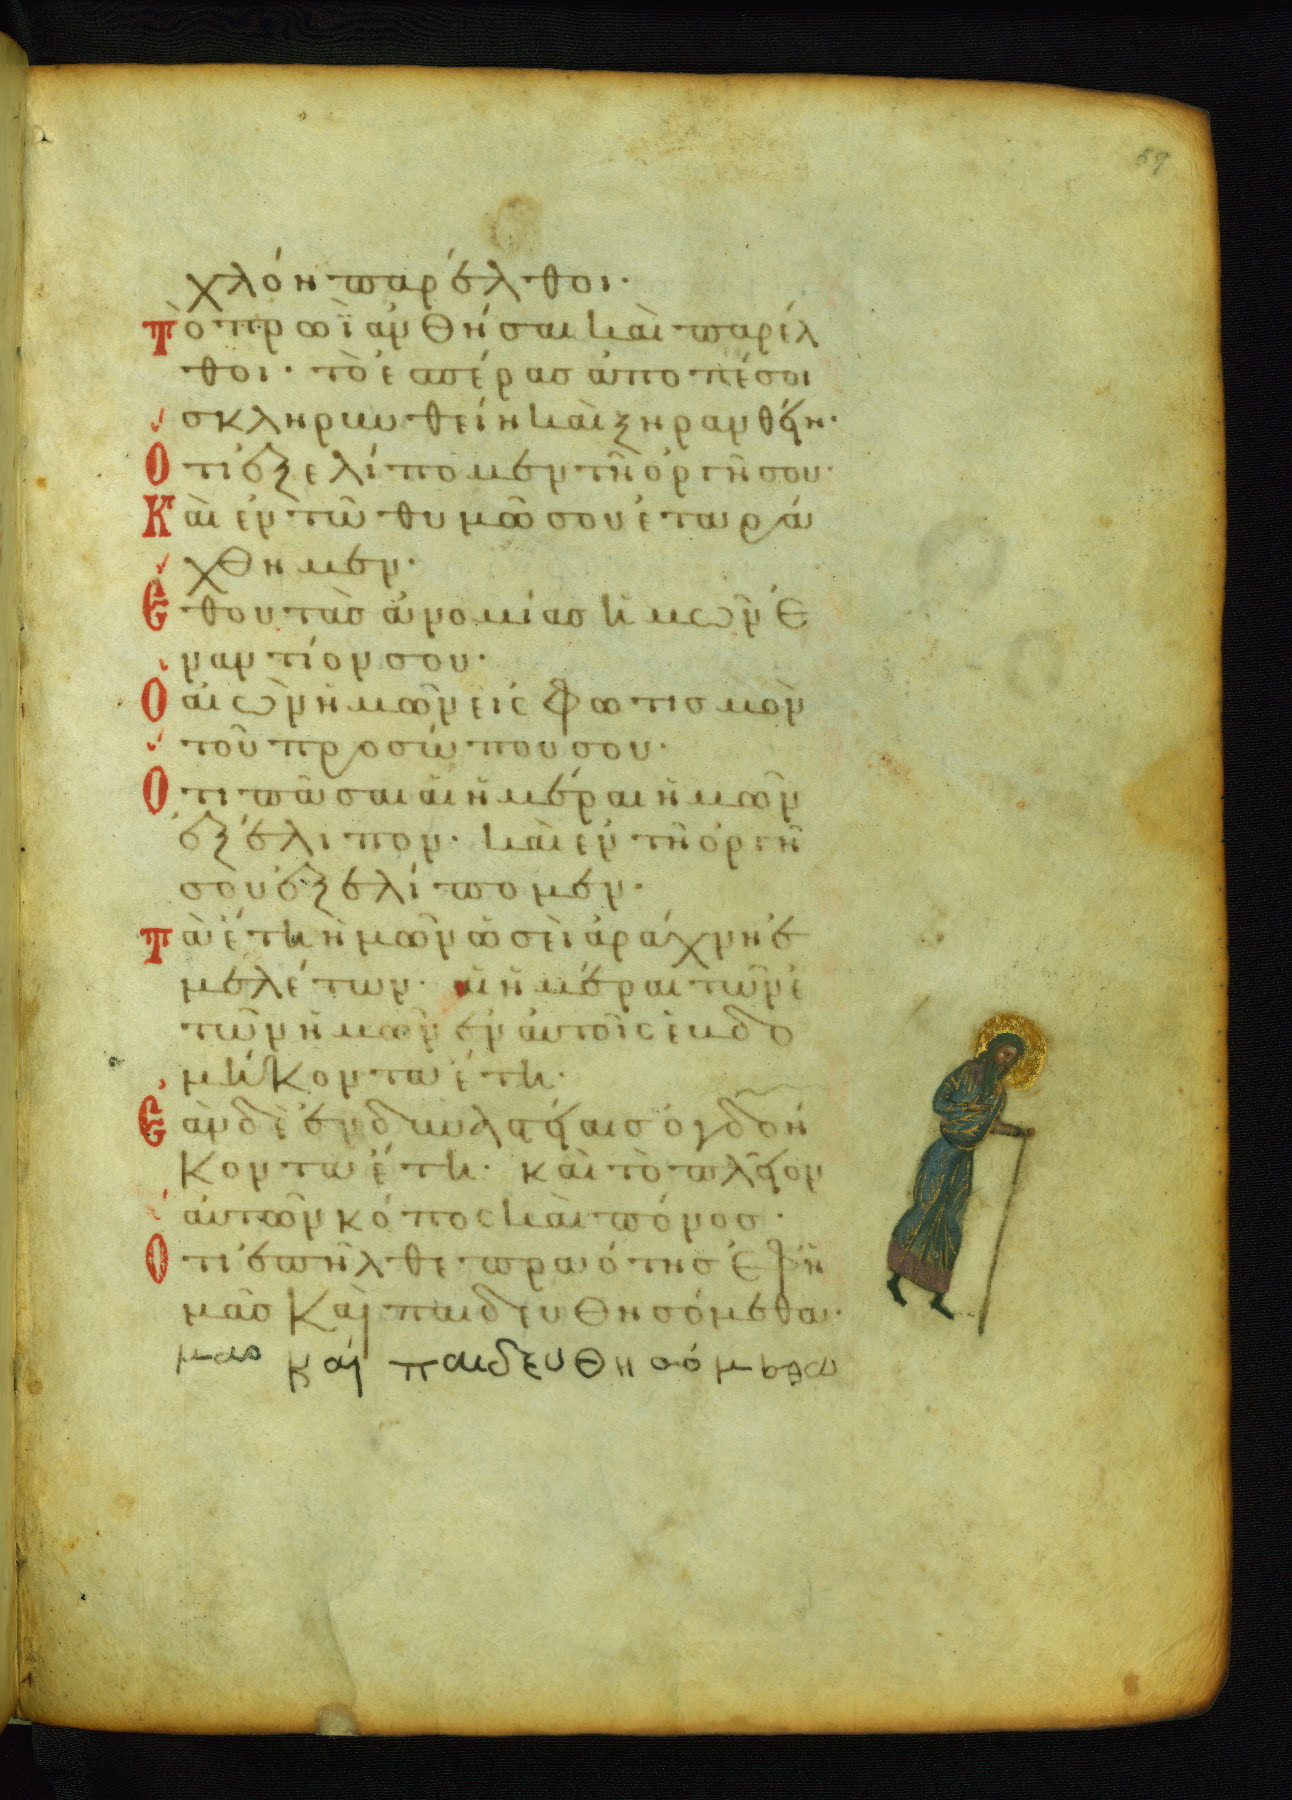 59
χλόη παρέλθοι·
Τὸ πρωῒ ἀνθήσαι καὶ παρέλ
θοι· τὸ ἑσπέρας ἀποπέσοι
σκληρυνθείη καὶ ξηρανθείη·
Ὅτι ἐξελίπομεν τῆ ὀργῆ σου·
Καὶ ἐν τῶ θυμῶ σου ἐταρά
χθημεν·
Ἔθου τὰς ἀνομίας ἡμῶν ἐ
ναντίον σου·
Ὁ αἰὼν ἡμῶν εἰς φωτισμὸν
τοῦ προσώπου σου·
Ὅτι πᾶσαι αἱ ἡμέραι ἡμῶν
ἐξέλιπον· καὶ ἐν τῆ ὀργῆ
σοὺ ἐξελίπομεν·
Τὰ ἔτη ἡμῶν ὡσεὶ ἀράχνη ἐ
μελέτων· αἱ ἡμέραι τῶν ἐ
τῶν ἡμῶν ἐν αὐτοῖς ἑβδο
μήκοντα ἔτη·
Ἐὰν δὲ ἐν δυναστείαις ὀγδοή
κοντα ἔτη· καὶ τὸ πλεῖον
αὐτῶν κόπος καὶ πόνος·
Ὅτι ἐπῆλθε πραότης ἐφ' ἡ
μᾶς καὶ παιδευθησόμεθα·
μας καὶ παιδευθησόμεθα